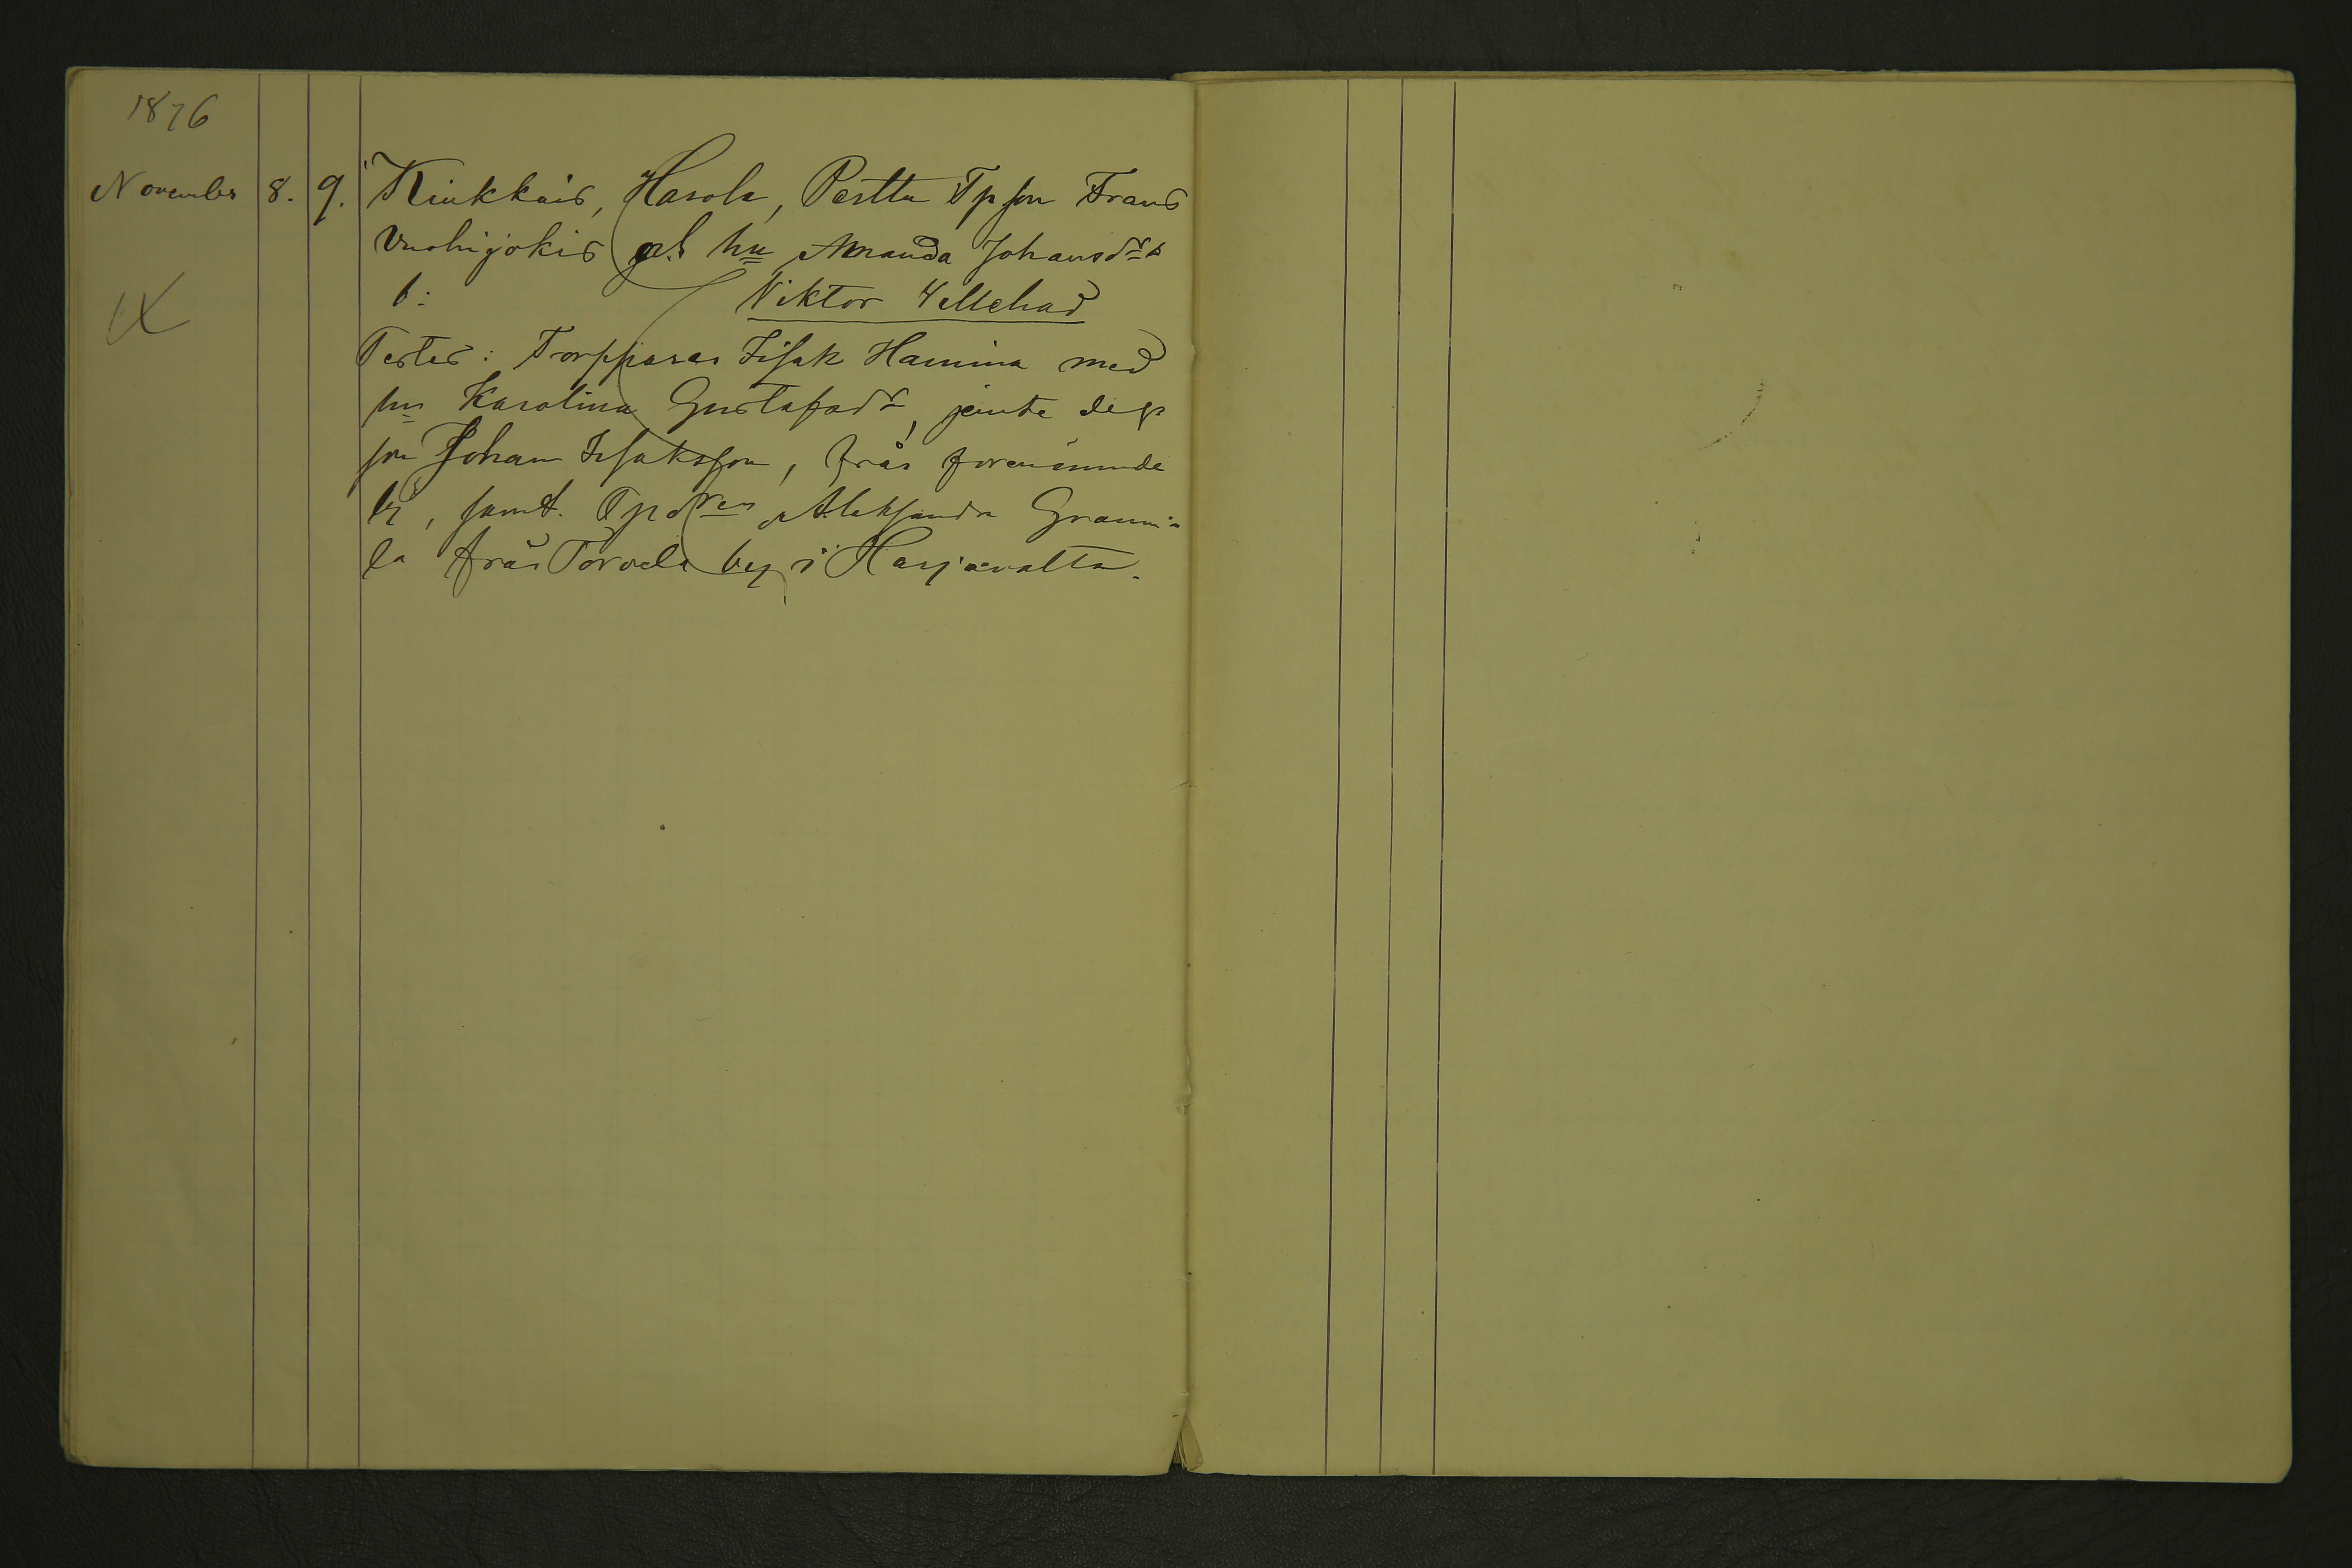 1876
November 8. 9. Kiukkais, Harola, Perttu Tpson Frans
Vuohijokis och hu Amanda Johansdrs
b:
Viktor Villehad
Testes: Torpparen Isak Hamina med
hu Karolina Gustafsdr, jemte dess
son Johan Isaksson, från förenämnde
by, samt Tpdren Aleksandra Granni-
la från Torvela by i Harjavalta.